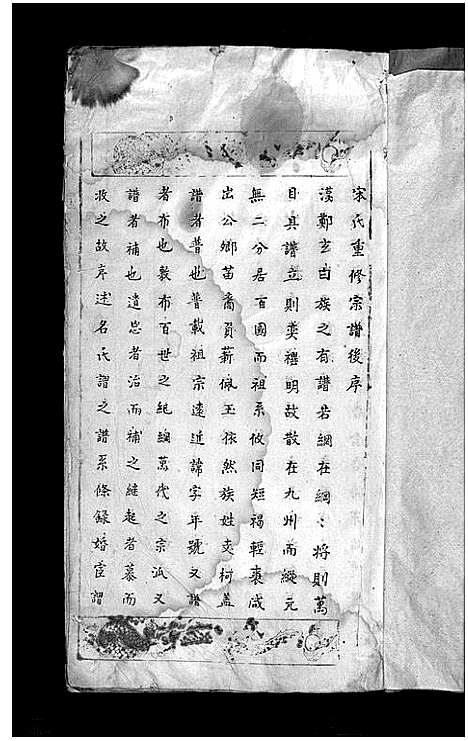 宋氏重修宗譜後序
漢鄭玄曰族之有譜若綱在綱〻將則萬
目具譜立則奠禩明故散在九州而縱元
無二分居百國而祖系攸同短褐輕裘咸
出公卿苗裔負薪佩玉依然族姓支柯蓋
譜者普也普載祖宗遠近諱字年號又譜
者布也敷布百世之紀綱萬代之宗派又
譜者補也遺忘者治而補之継起者慕而
收之故序述名氏謂之譜系條錄婚宦謂